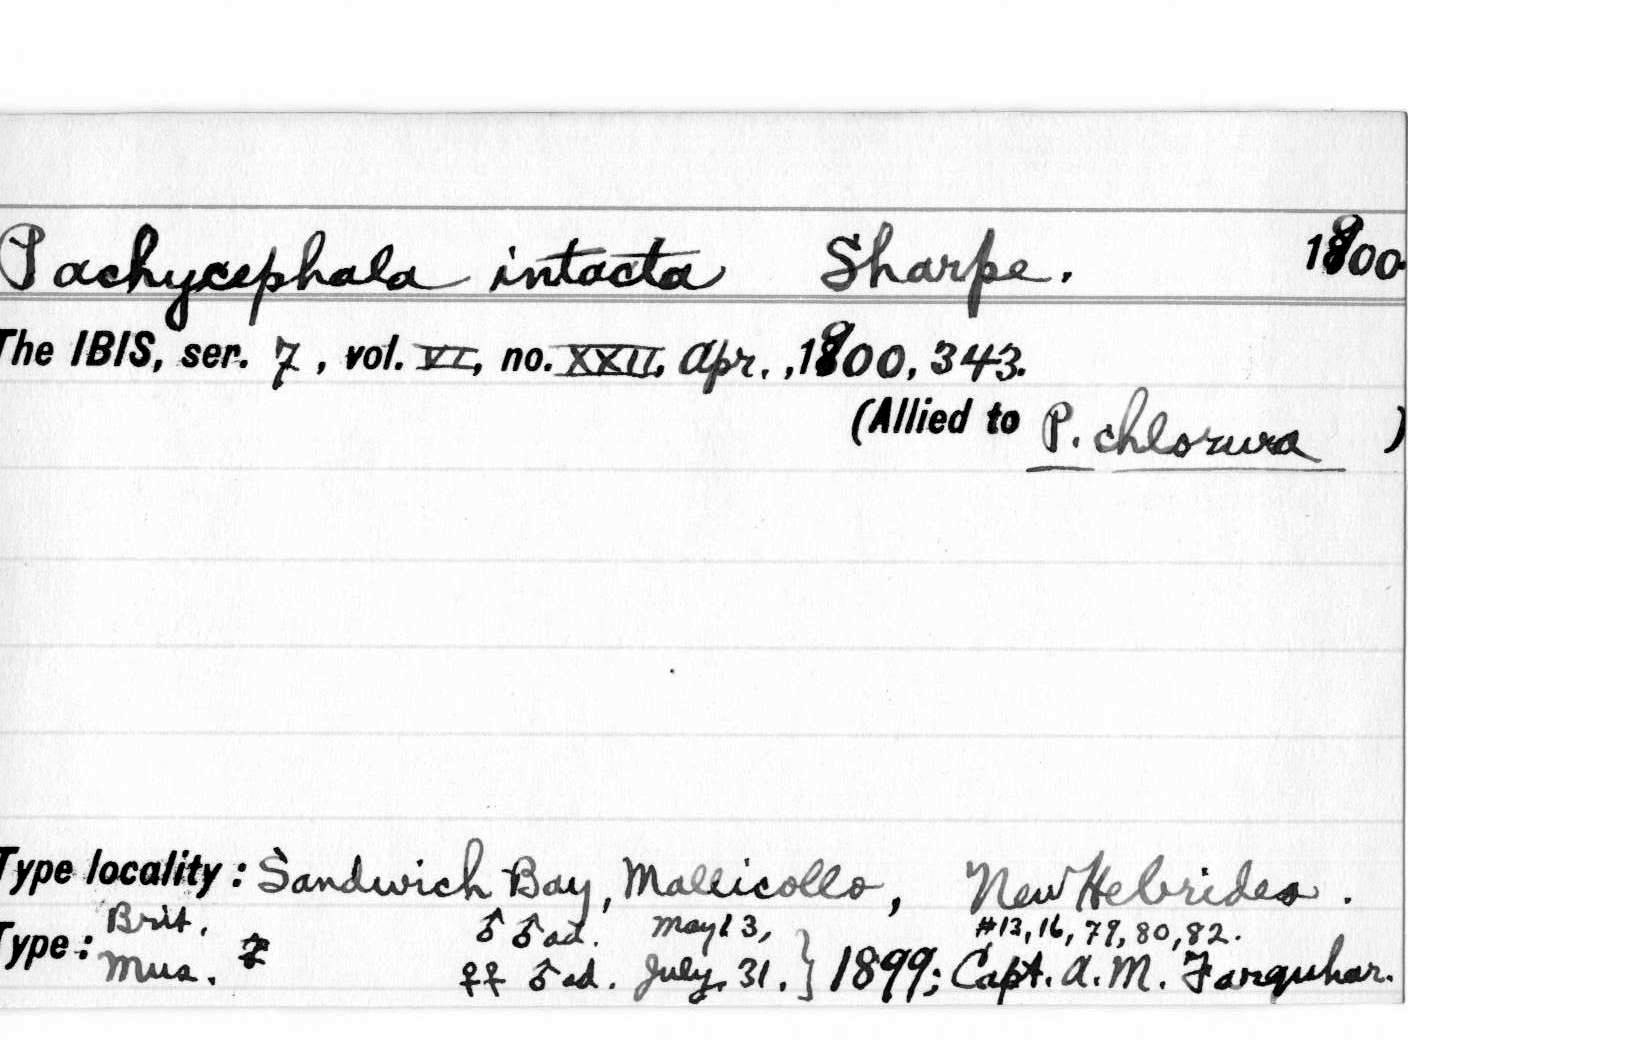 Pachycephala intacta Sharpe. 1900
The IBIS, ser. 7, vol. VI, no. XXII, Apr., 1900, 343.
(Allied to P. chlorura )
Type locality: Sandwich Bay, Mallicollo, New Hebrides.
Brit. ♂ ♂ ad. May 13, #13, 16, 79, 80, 82.
Type: Mus. ♀♀ ♂ ad. July, 31. } 1899; Capt. A. M. Farquhar.